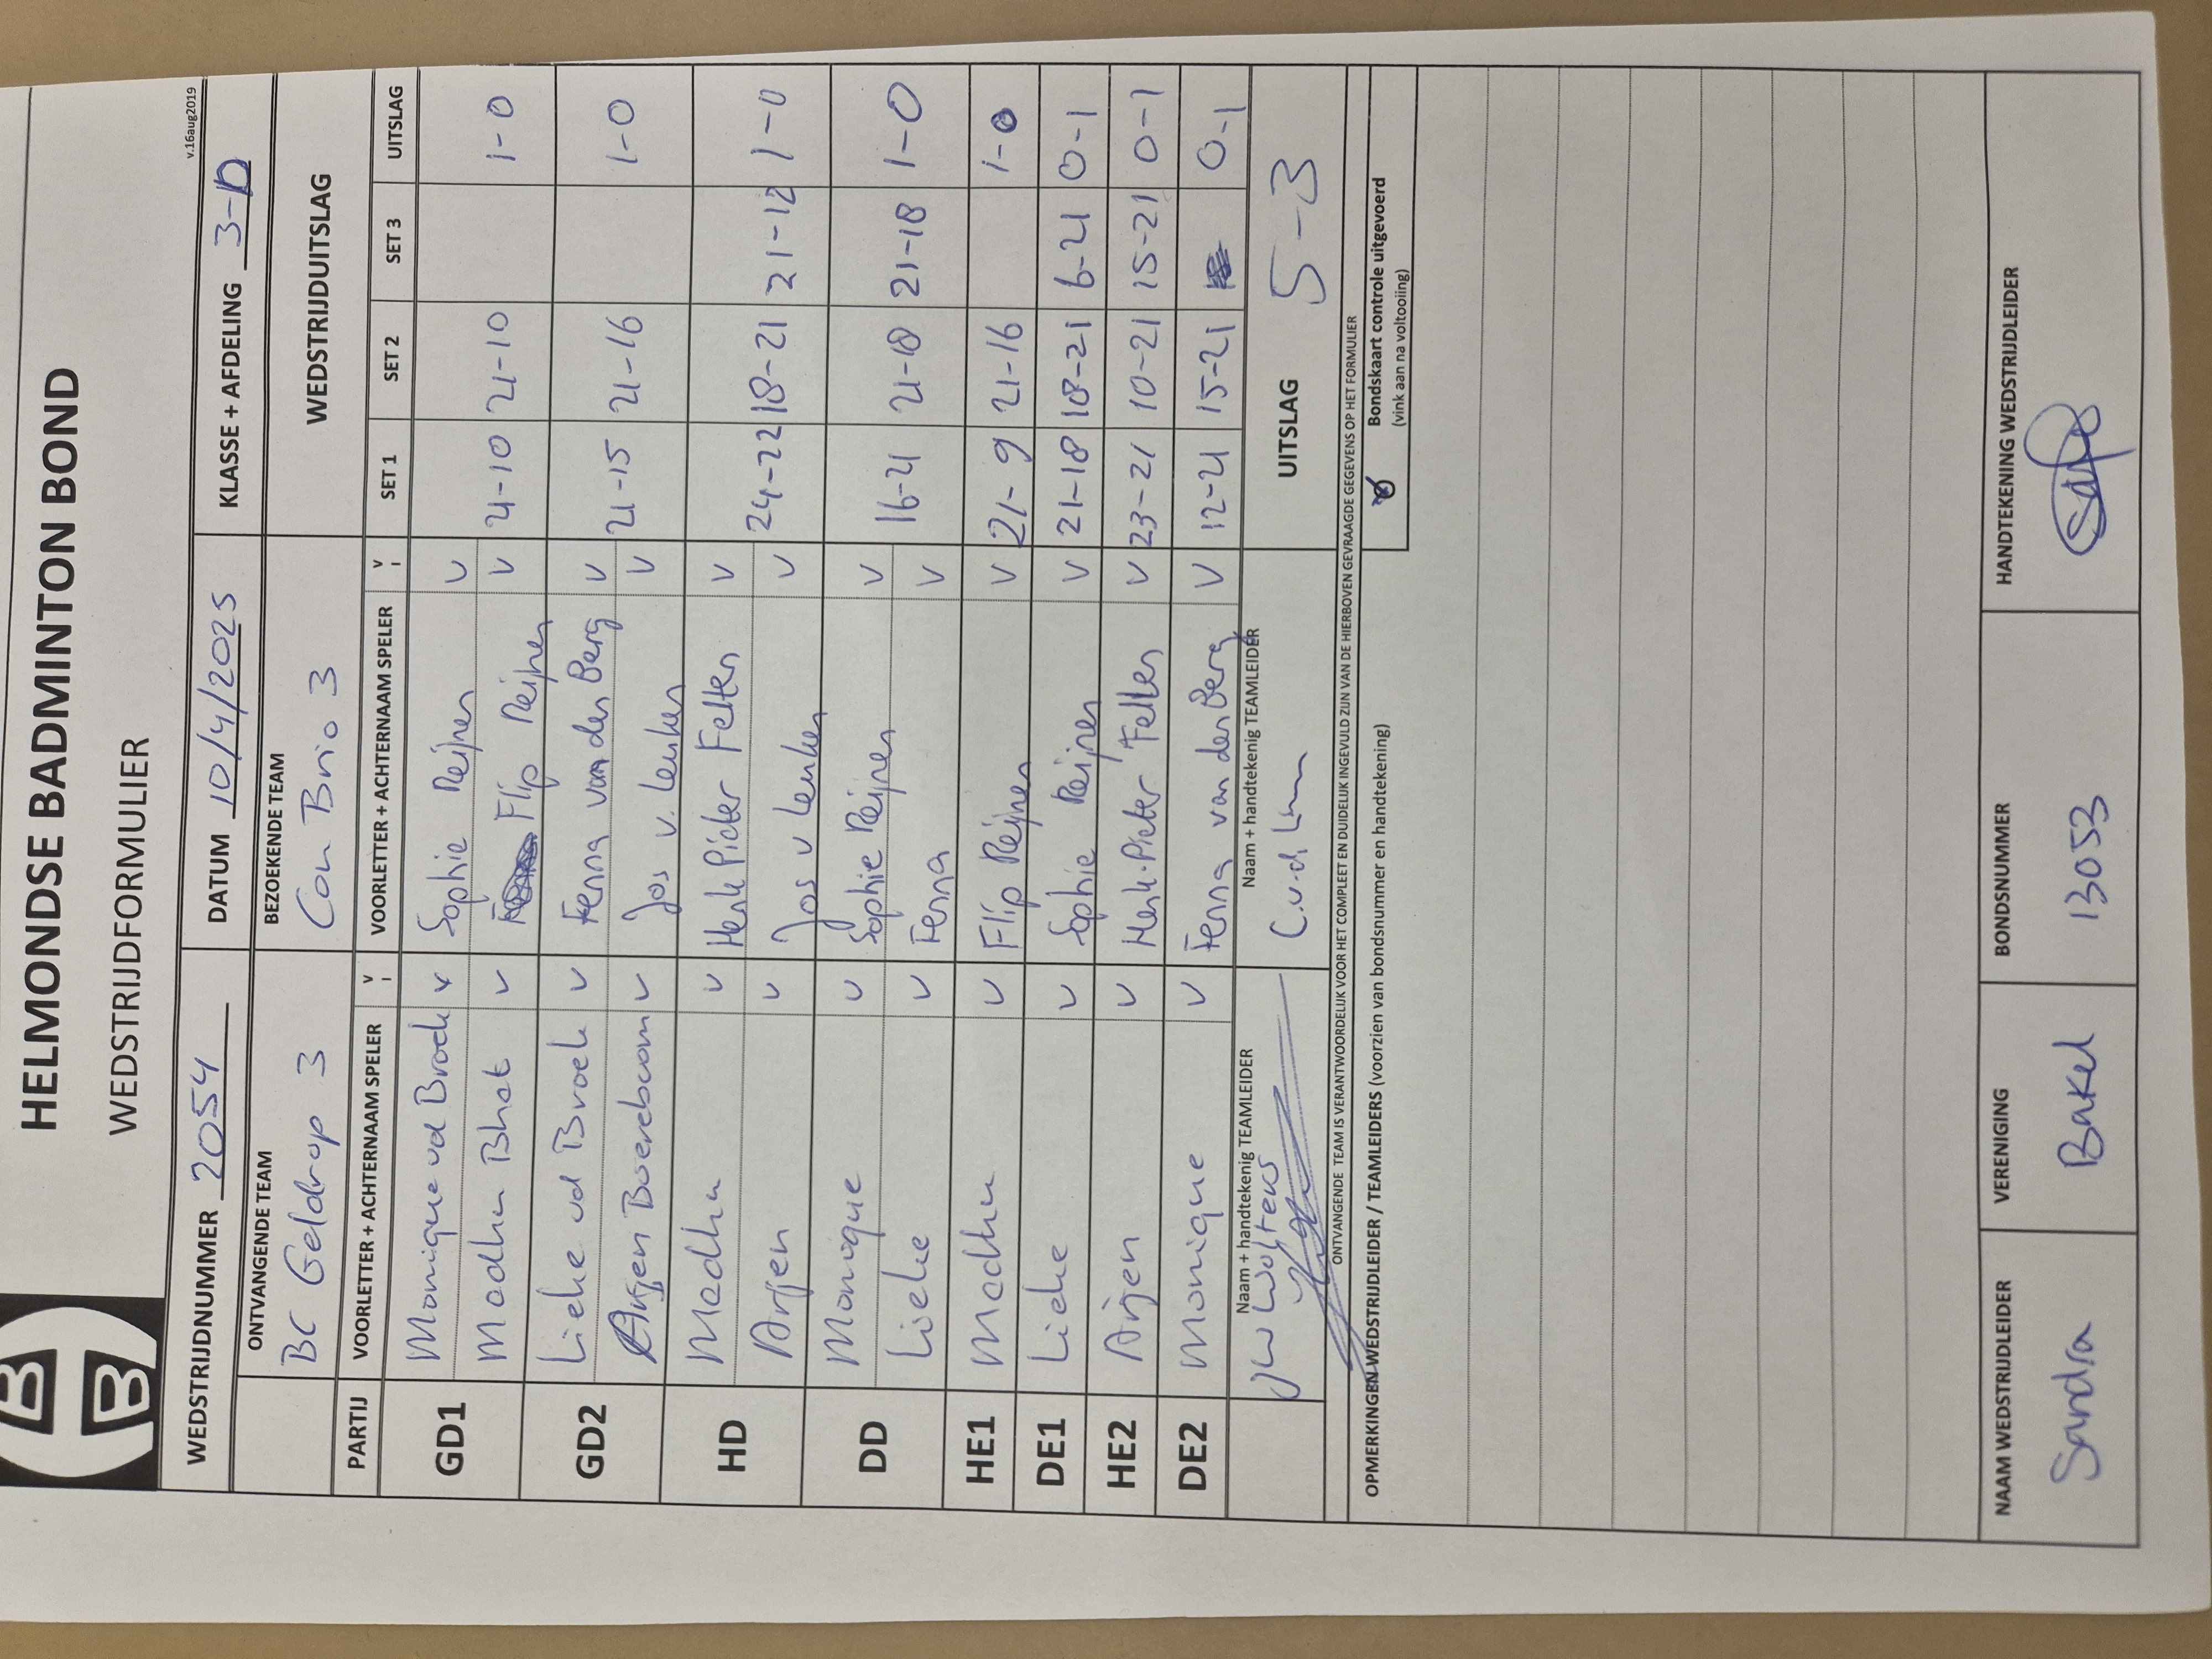 HELMONDSE BADMINTON BOND
WEDSTRIJDFORMULIER
v.16aug2019
WEDSTRIJDNUMMER 2054 DATUM 10/4/2025 KLASSE + AFDELING 3-D
ONTVANGENDE TEAM BEZOEKENDE TEAM WEDSTRIJDUITSLAG
BC Geldrop 3 Con Brio 3
PARTIJ VOORLETTER + ACHTERNAAM SPELER V VOORLETTER + ACHTERNAAM SPELER V SET 1 SET 2 SET 3 UITSLAG
GD1 Monique vd Broek v Sophie Reijnen v
Madhu Bhat v Flip Reijnen v 21-10 21-10 1-0
GD2 Lieke vd Broek v Fenna van den Berg v
Arjen Boereboom v Jos v. Leuken v 21-15 21-16 1-0
HD Madhu v Henk Pieter Felten v
Arjen v Jos v Leuken v 24-22 18-21 21-12 1-0
DD Monique v Sophie Reijnen v
Lieke v Fenna v 16-21 21-18 21-18 1-0
HE1 Madhu v Flip Reijnen v 21-9 21-16 1-0
DE1 Lieke v Sophie Reijnen v 21-18 18-21 6-21 0-1
HE2 Arjen v Henk-Pieter Felten v 23-21 10-21 15-21 0-1
DE2 Monique v Fenna van den Berg v 12-21 15-21 0-1
Naam + handtekenig TEAMLEIDER Naam + handtekenig TEAMLEIDER UITSLAG 5-3
JW Wolters
ONTVANGENDE TEAM IS VERANTWOORDELIJK VOOR HET COMPLEET EN DUIDELIJK INGEVULD ZIJN VAN DE HIERBOVEN GEVRAAGDE GEGEVENS OP HET FORMULIER
OPMERKINGEN WEDSTRIJDLEIDER / TEAMLEIDERS (voorzien van bondsnummer en handtekening) Bondskaart controle uitgevoerd
(vink aan na voltooiing)
NAAM WEDSTRIJDLEIDER VERENIGING BONDSNUMMER HANDTEKENING WEDSTRIJDLEIDER
Sandra Bakel 13053